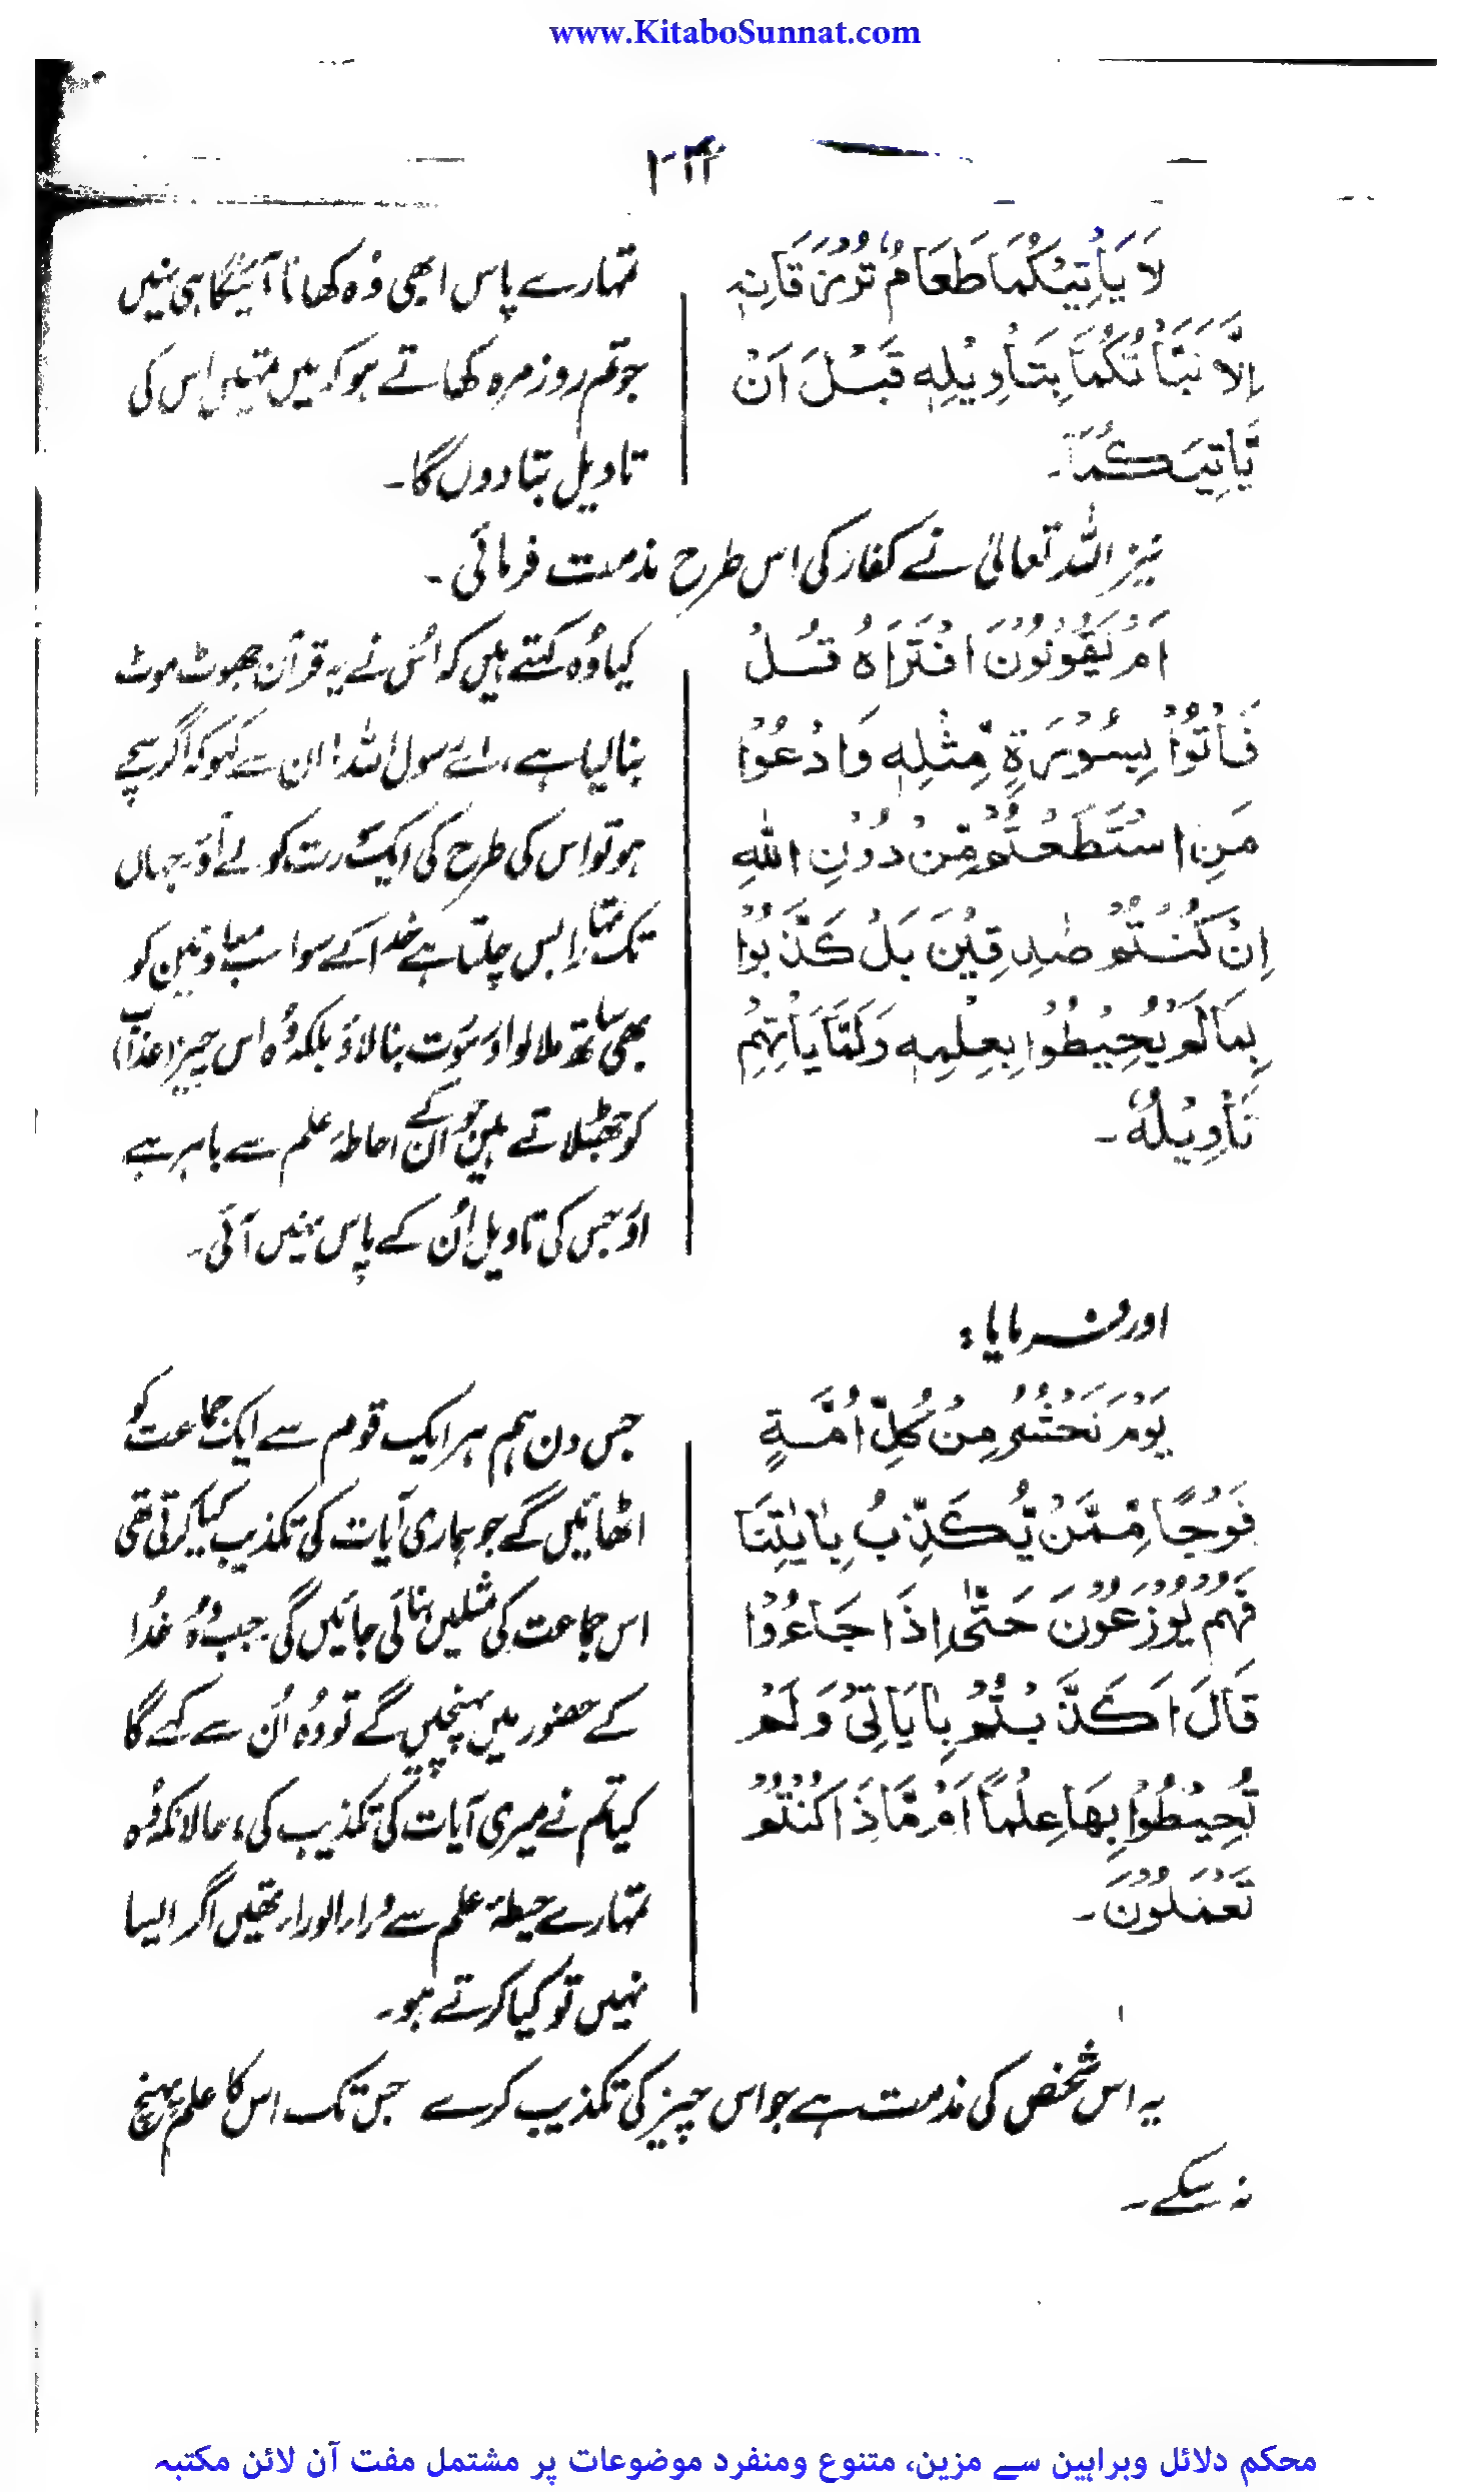 www.KitaboSunnat.com
لَا يَأْتِيْكُمَا طَعَامٌ تُرْزَقَانِهٖ
اِلَّا نَبَّأْتُكُمَا بِتَأْوِيْلِهٖ قَبْلَ اَنْ
يَّاْتِيَكُمَا۔
تمہارے پاس ابھی وُہ کھانا آئیگا ہی نہیں
جو تم روزمرہ کھاتے ہو کہ میں تمہیں اس کی
تاویل بتا دوں گا۔
نیز اللہ تعالیٰ نے کفار کی اس طرح مذمت فرمائی۔
اَمْ يَقُوْلُوْنَ افْتَرَاهُ قُلْ
فَأْتُوْا بِسُوْرَةٍ مِّثْلِهٖ وَادْعُوْا
مَنِ اسْتَطَعْتُمْ مِّنْ دُوْنِ اللهِ
اِنْ كُنْتُمْ صٰدِقِيْنَ بَلْ كَذَّبُوْا
بِمَا لَمْ يُحِيْطُوْا بِعِلْمِهٖ وَلَمَّا يَأْتِهِمْ
تَأْوِيْلُهٗ۔
کیا وُہ کہتے ہیں کہ اُس نے یہ قرآن جھوٹ موٹ
بنا لیا ہے، اے رسول اللہ! ان سے کہو کہ اگر سچے
ہو تو اس کی طرح کی ایک سُورت کو لے آؤ جہاں
تک تمہارا بس چلتا ہے خدا کے سوا سب معاونین کو
بھی ساتھ ملا لو اور سُورت بنا لاؤ بلکہ وُہ اس چیز (عذاب)
کو جھٹلاتے ہیں جو اُن کے احاطۂ علم سے باہر ہے
اور جس کی تاویل اُن کے پاس نہیں آئی۔
اور فرمایا:
يَوْمَ نَحْشُرُ مِنْ كُلِّ اُمَّةٍ
فَوْجًا مِّمَّنْ يُّكَذِّبُ بِاٰيٰتِنَا
فَهُمْ يُوْزَعُوْنَ حَتّٰى اِذَا جَاءُوْا
قَالَ اَكَذَّبْتُمْ بِاٰيَاتِيْ وَلَمْ
تُحِيْطُوْا بِهَا عِلْمًا اَمْ مَّاذَا كُنْتُمْ
تَعْمَلُوْنَ۔
جس دن ہم ہر ایک قوم سے ایک جماعت کو
اٹھائیں گے جو ہماری آیات کی تکذیب کیا کرتی تھی
اس جماعت کی مثلیں بنائی جائیں گی۔ جب وُہ خُدا
کے حضور میں پہنچیں گے تو وُہ اُن سے کہے گا
کیا تم نے میری آیات کی تکذیب کی، حالانکہ وُہ
تمہارے حیطۂ علم سے وراء الوراء تھیں اگر ایسا
نہیں تو کیا کرتے ہو۔
یہ اس شخص کی مذمت ہے جو اس چیز کی تکذیب کرے جس تک اس کا علم پہنچ
نہ سکے۔
محکم دلائل وبراہین سے مزین، متنوع ومنفرد موضوعات پر مشتمل مفت آن لائن مکتبہ